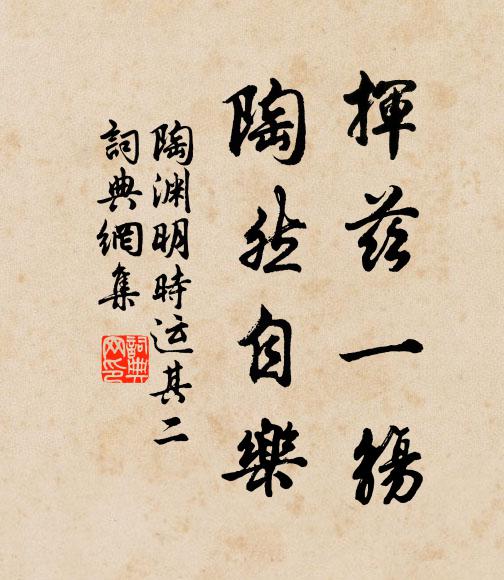 揮茲一觴
陶然自樂
陶淵明時运其二
詞典網集
詞典
网印